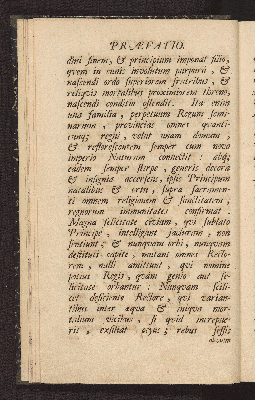 PRÆFATIO.
dini finem, & principium imponat filio,
quem in cunis involutum purpurâ, &
nascendi ordo superiorem fratribus, &
reliquis mortalibus proximiorem throno,
nascendi conditio ostendit. Ita enim
una familia, perpetuum Regum semi-
narium, provincias omnes quanti-
cunq; regni, velut unam domum,
& reflorescentem semper cum novo
imperio Naturam connectit: abq;
eadem semper stirpe, generis decora
& insignia accersens, ipsis Principum
natalibus & ortu, supra sacramen-
ti omnem religionem & sanctitatem,
regnorum immunitates confirmat.
Magna felicitate etiam, qui sublato
Principe, intelligunt jacturam, non
sentiunt; & nunquam orbi, nunquam
destituti capite, mutant omnes Recto-
rem, nulli amittunt, qui nomine
potius Regis, quàm genio aut fe-
licitate orbantur: Nunquam scili-
cet deficiente Rectore, qui varian-
tibus inter æqua & iniqua mor-
talium vicibus, si quid increpue-
rit, exsiliat ocyus; rebus fessis